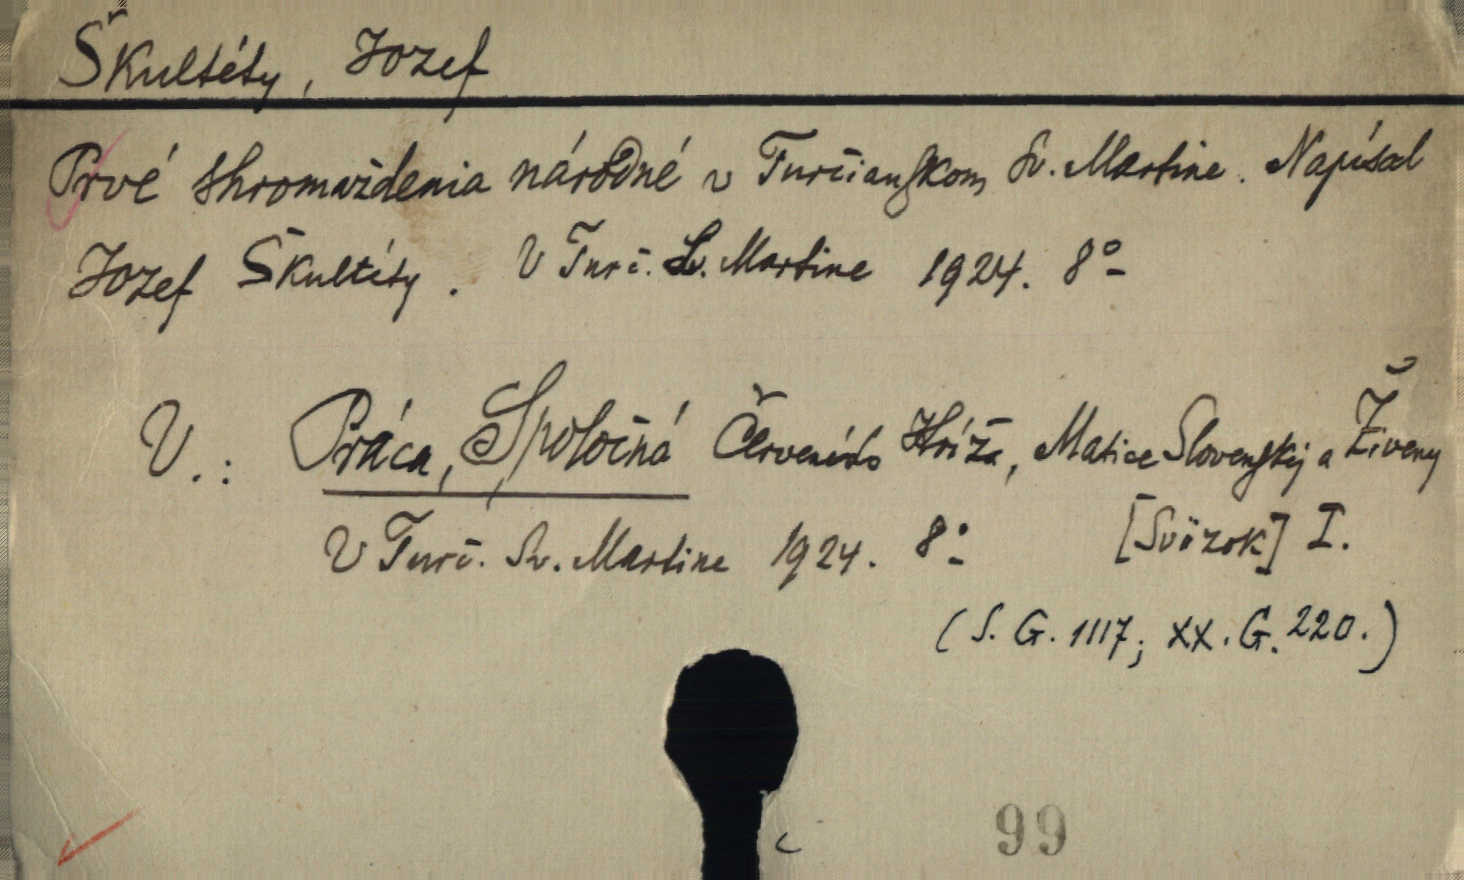 Škultéty, Jozef
Prvé shromaždenia národné v Turčianskom Sv. Martine. Napísal
Jozef Škultéty. V Turč. Sv. Martine 1924. 8°
V.: Práca, Spoločná Červeného Kríža, Matice Slovenskej a Živeny
V Turč. Sv. Martine 1924. 8°
[Sväzok] I.
(S. G. 1117; XX. G. 220.)
99